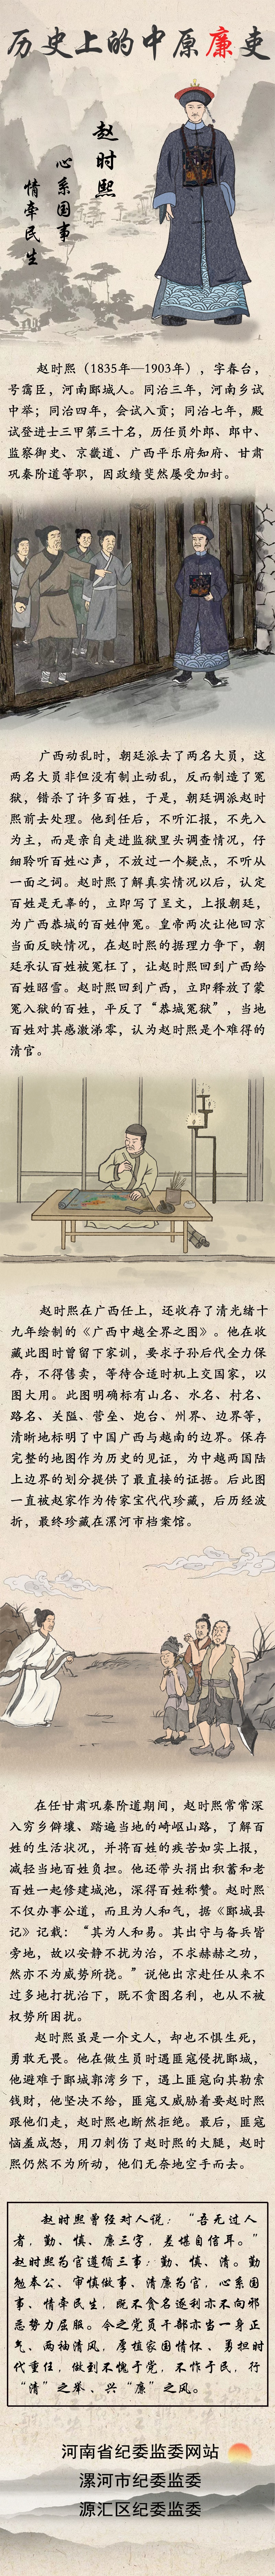 历史上的中原廉吏
赵时熙
心系国事
情牵民生
赵时熙（1835年—1903年），字春台，
号霭臣，河南郾城人。同治三年，河南乡试
中举；同治四年，会试入贡；同治七年，殿
试登进士三甲第三十名，历任员外郎、郎中、
监察御史、京畿道、广西平乐府知府、甘肃
巩秦阶道等职，因政绩斐然屡受加封。
广西动乱时，朝廷派去了两名大员，这
两名大员非但没有制止动乱，反而制造了冤
狱，错杀了许多百姓，于是，朝廷调派赵时
熙前去处理。他到任后，不听汇报，不先入
为主，而是亲自走进监狱里头调查情况，仔
细聆听百姓心声，不放过一个疑点，不听从
一面之词。赵时熙了解真实情况以后，认定
百姓是无辜的，立即写了呈文，上报朝廷，
为广西恭城的百姓伸冤。皇帝两次让他回京
当面反映情况，在赵时熙的据理力争下，朝
廷承认百姓被冤枉了，让赵时熙回到广西给
百姓昭雪。赵时熙回到广西，立即释放了蒙
冤入狱的百姓，平反了“恭城冤狱”，当地
百姓对其感激涕零，认为赵时熙是个难得的
清官。
赵时熙在广西任上，还收存了清光绪十
九年绘制的《广西中越全界之图》。他在收
藏此图时曾留下家训，要求子孙后代全力保
存，不得售卖，等待合适时机上交国家，以
图大用。此图明确标有山名、水名、村名、
路名、关隘、营垒、炮台、州界、边界等，
清晰地标明了中国广西与越南的边界。保存
完整的地图作为历史的见证，为中越两国陆
上边界的划分提供了最直接的证据。后此图
一直被赵家作为传家宝代代珍藏，后历经波
折，最终珍藏在漯河市档案馆。
在任甘肃巩秦阶道期间，赵时熙常常深
入穷乡僻壤、踏遍当地的崎岖山路，了解百
姓的生活状况，并将百姓的疾苦如实上报，
减轻当地百姓负担。他还带头捐出积蓄和老
百姓一起修建城池，深得百姓称赞。赵时熙
不仅办事公道，而且为人和气，据《郾城县
记》记载：“其为人和易。其出守与备兵皆
旁地，故以安静不扰为治，不求赫赫之功，
然亦不为威势所挠。”说他出京赴任从来不
过多地打扰治下，既不贪图名利，也从不被
权势所困扰。
赵时熙虽是一介文人，却也不惧生死，
勇敢无畏。他在做生员时遇匪寇侵扰郾城，
他避难于郾城郭湾乡下，遇上匪寇向其勒索
钱财，他坚决不给，匪寇又威胁着要赵时熙
跟他们走，赵时熙也断然拒绝。最后，匪寇
恼羞成怒，用刀刺伤了赵时熙的大腿，赵时
熙仍然不为所动，他们无奈地空手而去。
赵时熙曾经对人说：“吾无过人
者，勤、慎、廉三字，差堪自信耳。”
赵时熙为官遵循三事：勤、慎、清。勤
勉奉公、审慎做事、清廉为官，心系国
事、情牵民生，既不贪名逐利亦不向邪
恶势力屈服。今之党员干部亦当一身正
气、两袖清风，厚植家国情怀、勇担时
代重任，做到不愧于党、不怍于民，行
“清”之举、兴“廉”之风。
河南省纪委监委网站
漯河市纪委监委
源汇区纪委监委